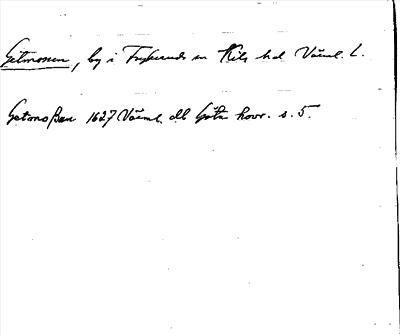 Getmossen, by i Frykerud sn Kils hd Värml. L.
Getmoßan 1627 Värml. dlb Göta hovr. s. 5.